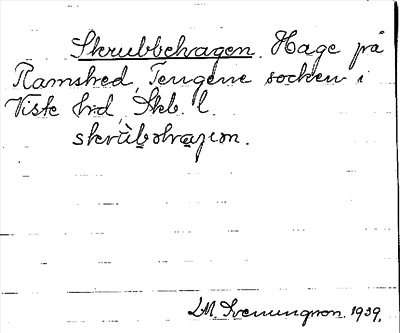 Skrubbehagen. Hage på
Ramshed, Tengene socken i
Viste hrd, Skb. l.
skrùbəhagən.
LM. Svenungson. 1939.